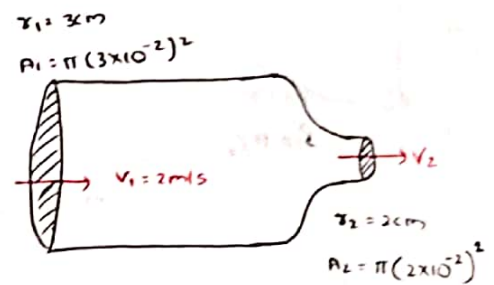 r₁ = 3cm
A₁ = π(3×10⁻²)²
V₁ = 2m/s
V₂
r₂ = 2cm
A₂ = π(2×10⁻²)²